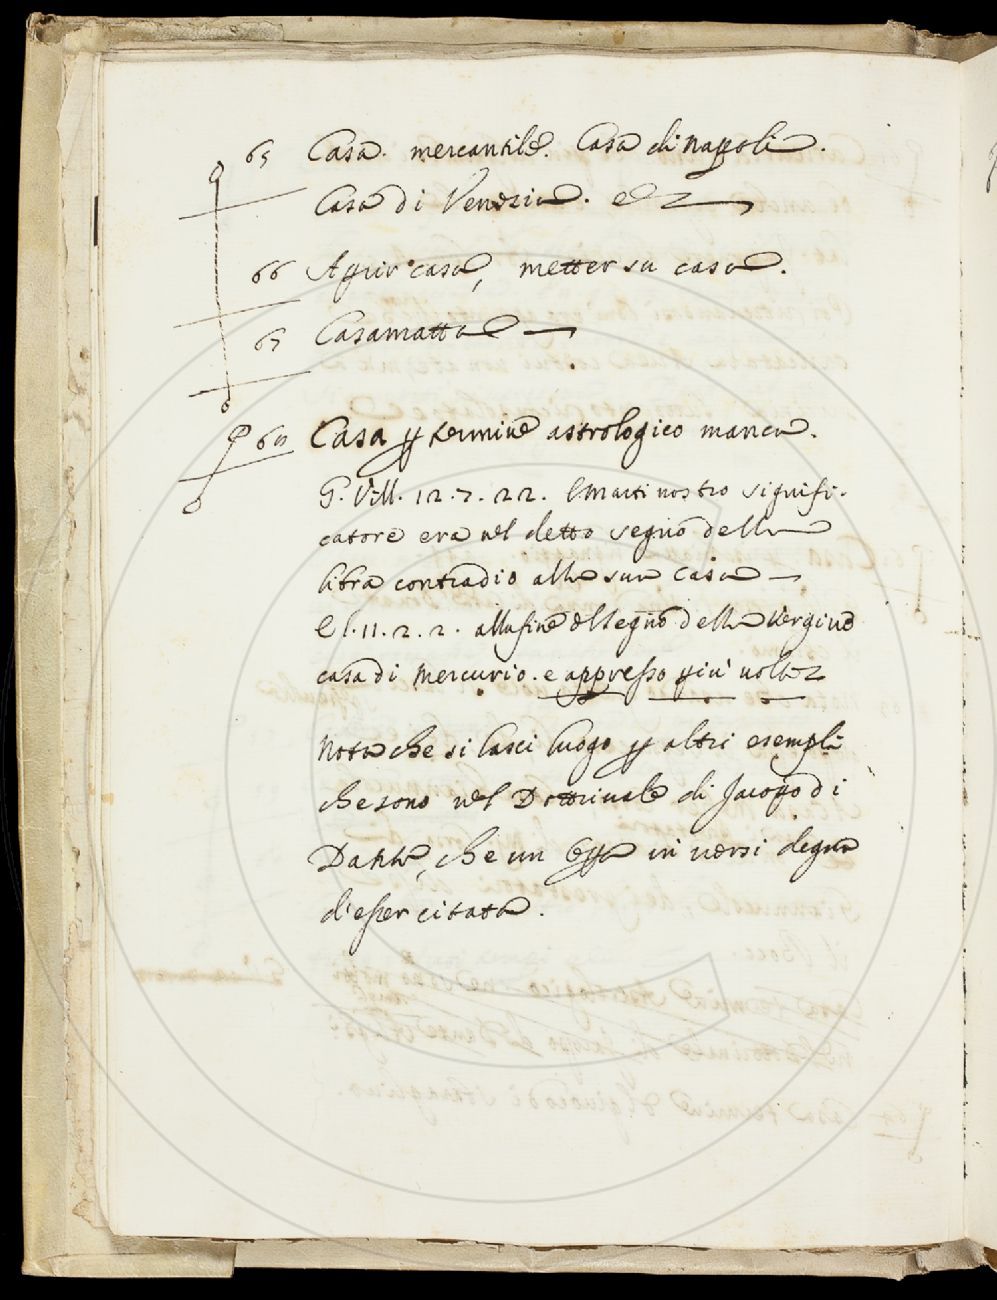 65 Casa. mercantile. Casa di Napoli.
Casa di Venezia. etc
66 Aprir casa, metter su casa.
67 Casamatta
68 Casa p termine astrologico manca.
G. Vill. 12. 7. 22. E Marti nostro signifi-
catore era nel detto segno della
libra contradio alla sua casa
E l. 11. 2. 2. alla fine del segno della Vergine
casa di Mercurio. e appresso più volte
Nota che si lasci luogo p altri esempli
che sono nel Dottrinale di Jacopo di
Dante, che un in versi degna
d'esser citata.